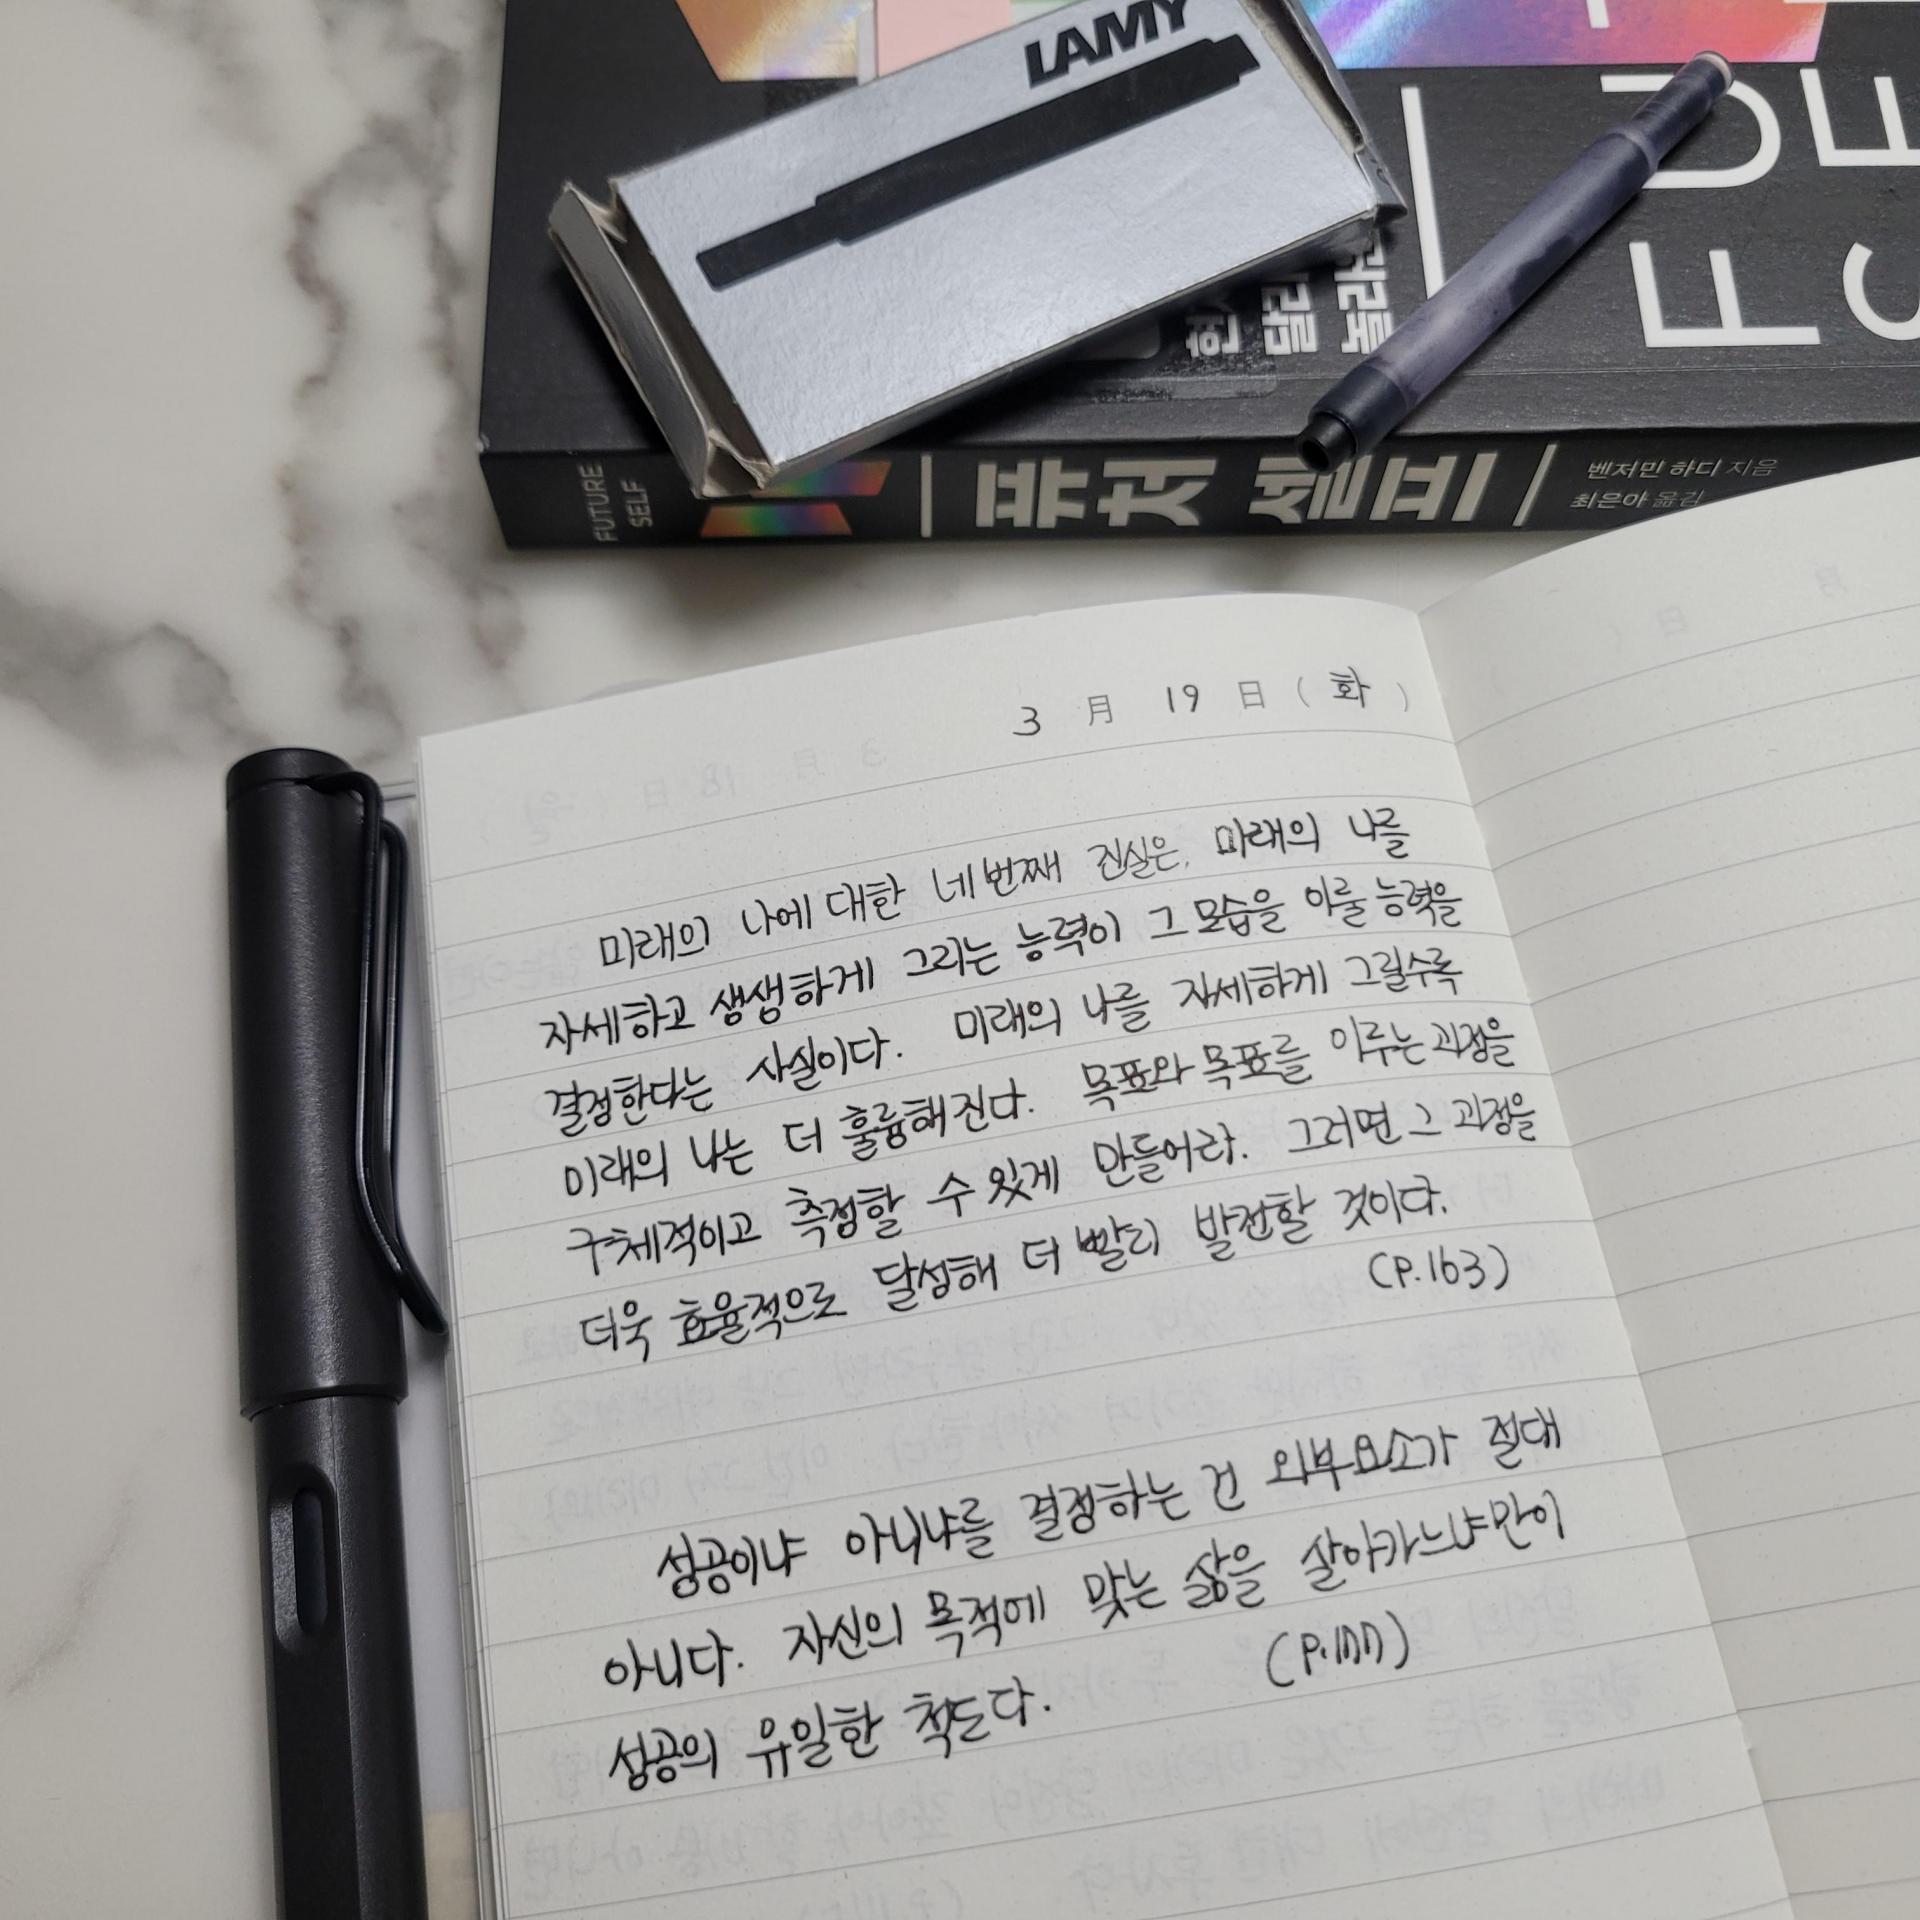 LAMY
FUTURE
SELF
퓨처 셀프
벤저민 하디 지음
최은아 옮김
3 月 19 日 ( 화 )
미래의 나에 대한 네번째 진실은, 미래의 나를
자세하고 생생하게 그리는 능력이 그 모습을 이룰 능력을
결정한다는 사실이다. 미래의 나를 자세하게 그릴수록
미래의 나는 더 훌륭해진다. 목표와 목표를 이루는 과정을
구체적이고 측정할 수 있게 만들어라. 그러면 그 과정을
더욱 효율적으로 달성해 더 빨리 발전할 것이다.
(P.163)
성공이냐 아니냐를 결정하는 건 외부요소가 절대
아니다. 자신의 목적에 맞는 삶을 살아가느냐만이
성공의 유일한 척도다. (P.177)